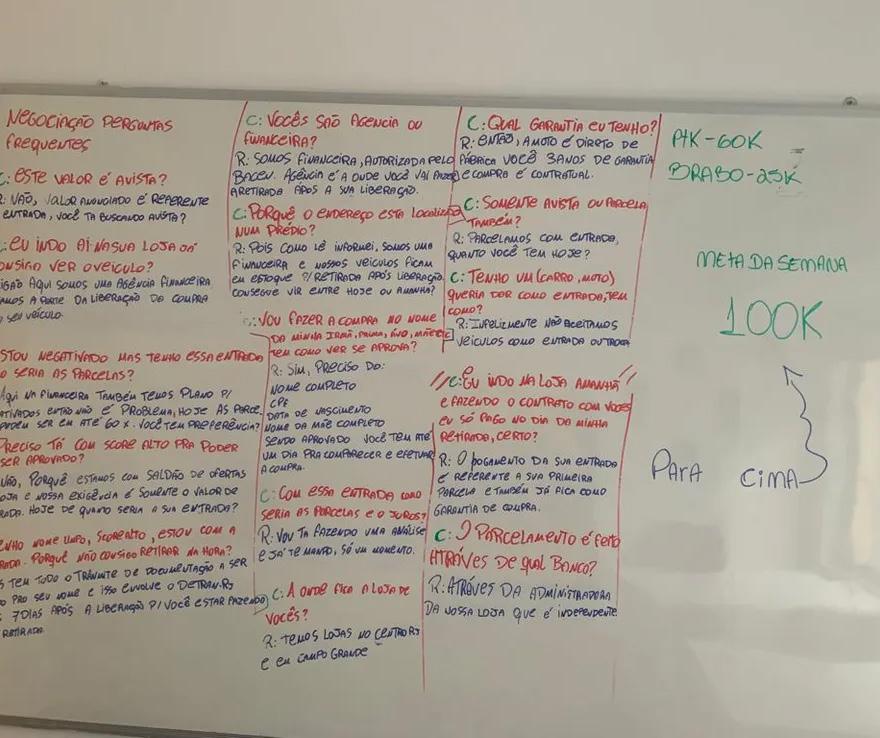 NEGOCIAÇÃO PERGUNTAS
FREQUENTES
C: ESTE VALOR É AVISTA?
R: NÃO, VALOR ANUNCIADO É REFERENTE
ENTRADA, VOCÊ TA BUSCANDO AVISTA?
C: EU INDO AÍ NA SUA LOJA JÁ
CONSIGO VER O VEICULO?
AQUI SOMOS UMA AGÊNCIA FINANCEIRA
A PARTE DA LIBERAÇÃO DA COMPRA
SEU VEÍCULO.
STOU NEGATIVADO MAS TENHO ESSA ENTRADA
O SERIA AS PARCELAS?
AQUI NA FINANCEIRA TAMBÉM TEMOS PLANO P/
ATIVADOS ENTÃO NÃO É PROBLEMA, HOJE AS PARCE.
PODEM SER EM ATÉ 60X. VOCÊ TEM PREFERÊNCIA?
PRECISO TÁ COM SCORE ALTO PRA PODER
SER APROVADO?
NÃO, PORQUÊ ESTAMOS COM SALDÃO DE OFERTAS
LOJA E NOSSA EXIGÊNCIA É SOMENTE O VALOR DE
RADA. HOJE DE QUANTO SERIA A SUA ENTRADA?
ENHO NOME LIMPO, SCORE ALTO, ESTOU COM A
RADA. PORQUÊ NÃO CONSIGO RETIRAR NA HORA?
S TEM TODO O TRÂMITE DE DOCUMENTAÇÃO A SER
O PRO SEU NOME E ISSO ENVOLVE O DETRAN.RJ
7 DIAS APÓS A LIBERAÇÃO P/ VOCÊ ESTAR FAZENDO
RETIRADA
C: VOCÊS SÃO AGENCIA OU
FINANCEIRA?
R: SOMOS FINANCEIRA, AUTORIZADA PELO
BACEN. AGÊNCIA É A ONDE VOCÊ VAI FAZER
A RETIRADA APÓS A SUA LIBERAÇÃO.
C: PORQUÊ O ENDEREÇO ESTA LOCALIZADO
NUM PRÉDIO?
R: POIS COMO LÊ INFORMEI, SOMOS UMA
FINANCEIRA E NOSSOS VEICULOS FICAM
EM ESTOQUE P/ RETIRADA APÓS LIBERAÇÃO.
CONSEGUE VIR ENTRE HOJE OU AMANHÃ?
C: VOU FAZER A COMPRA NO NOME
DA MINHA IRMÃ, PRIMA, AVO, MÃE ETC
TEM COMO VER SE APROVA?
R: SIM, PRECISO DO:
NOME COMPLETO
CPF
DATA DE NASCIMENTO
NOME DA MÃE COMPLETO
SENDO APROVADO VOCÊ TEM ATÉ
UM DIA PRA COMPARECER E EFETUAR
A COMPRA.
C: COM ESSA ENTRADA COMO
SERIA AS PARCELAS E O JUROS?
R: VOU TA FAZENDO UMA ANÁLISE
E JÁ TE MANDO, SÓ UM MOMENTO.
C: A ONDE FICA A LOJA DE
VOCÊS?
R: TEMOS LOJAS NO CENTRO RJ
E EM CAMPO GRANDE
C: QUAL GARANTIA EU TENHO?
R: ENTÃO, A MOTO É DIRETO DE
FÁBRICA VOCÊ 3 ANOS DE GARANTIA
E COMPRA É CONTRATUAL.
C: SOMENTE AVISTA OU PARCELA
TAMBÉM?
R: PARCELAMOS COM ENTRADA,
QUANTO VOCÊ TEM HOJE?
C: TENHO UM (CARRO, MOTO)
QUERIA DAR COMO ENTRADA, TEM
COMO?
R: INFELIZMENTE NÃO ACEITAMOS
VEICULOS COMO ENTRADA OU TROCA
//C: EU INDO NA LOJA AMANHÃ //
E FAZENDO O CONTRATO COM VOCÊS
EU SÓ PAGO NO DIA DA MINHA
RETIRADA, CERTO?
R: O PAGAMENTO DA SUA ENTRADA
É REFERENTE A SUA PRIMEIRA
PARCELA E TAMBÉM JÁ FICA COMO
GARANTIA DE COMPRA.
C: O PARCELAMENTO É FEITO
ATRÁVES DE QUAL BANCO?
R: ATRÁVES DA ADMINISTRADORA
DA NOSSA LOJA QUE É INDEPENDENTE
PTK - 60K
BRABO - 25K
META DA SEMANA
100K
PARA CIMA